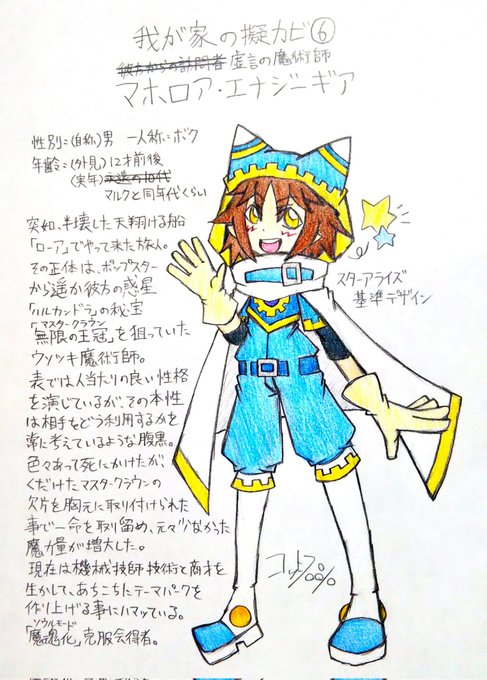 我が家の擬カビ⑥
彼方からの訪問者 虚言の魔術師
マホロア・エナジーギア
性別:(自称)男 一人称:ボク
年齢:(外見)12才前後
(実年)永遠の10代
マルクと同年代くらい
突如、半壊した天翔ける船
「ローア」でやって来た旅人。
その正体は、ポップスター
から遥か彼方の惑星
「ハルカンドラ」の秘宝
マスタークラウン
「無限の王冠」を狙っていた
ウソツキ魔術師。
表では人当たりの良い性格
を演じているが、その本性
は相手をどう利用するかを
常に考えているような腹黒。
色々あって死にかけたが、
くだけたマスタークラウンの
欠片を胸元に取り付けられた
事で一命を取り留め、元々少なかった
魔力量が増大した。
現在は機械技師技術と商才を
生かして、あちこちにテーマパークを
作り上げる事にハマッている。
ソウルモード
「魔魂化」克服会得者。
スターアライズ
基準デザイン